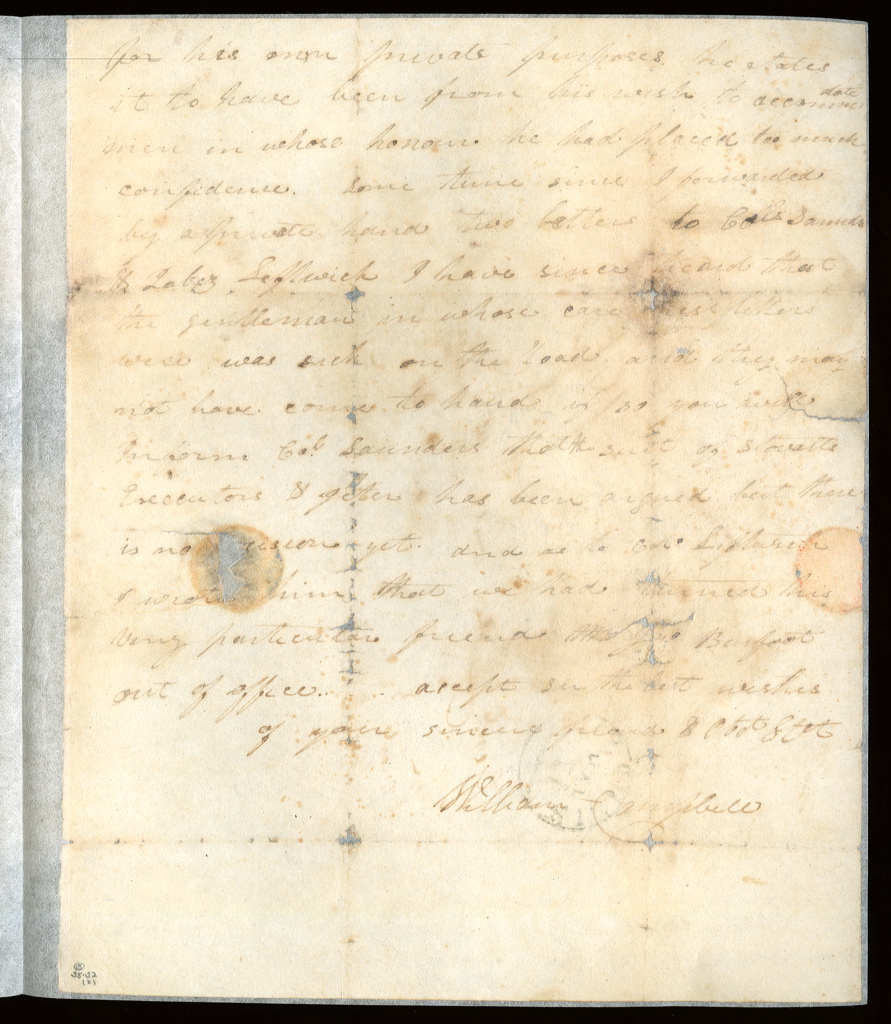 for his own private purposes, he states
it to have been from his wish to accommodate
men in whose honour he had placed too much
confidence. Some time since I forwarded
by a private hand two letters to Cols Saunders
& Jabez Leftwich I have since heard that
the gentleman in whose care these letters
were was sick on the road and they may
not have come to hand if so you will
inform Col. Saunders that the suit of Stovalls
Executors & Jeter has been argued but there
is no decision yet. and as to Col. Leftwich
I wrote him that we had turned his
very particular friend Burfoot
out of office. accept sir the best wishes
of your sincere friend & Obd Svt
William Campbell
38-52